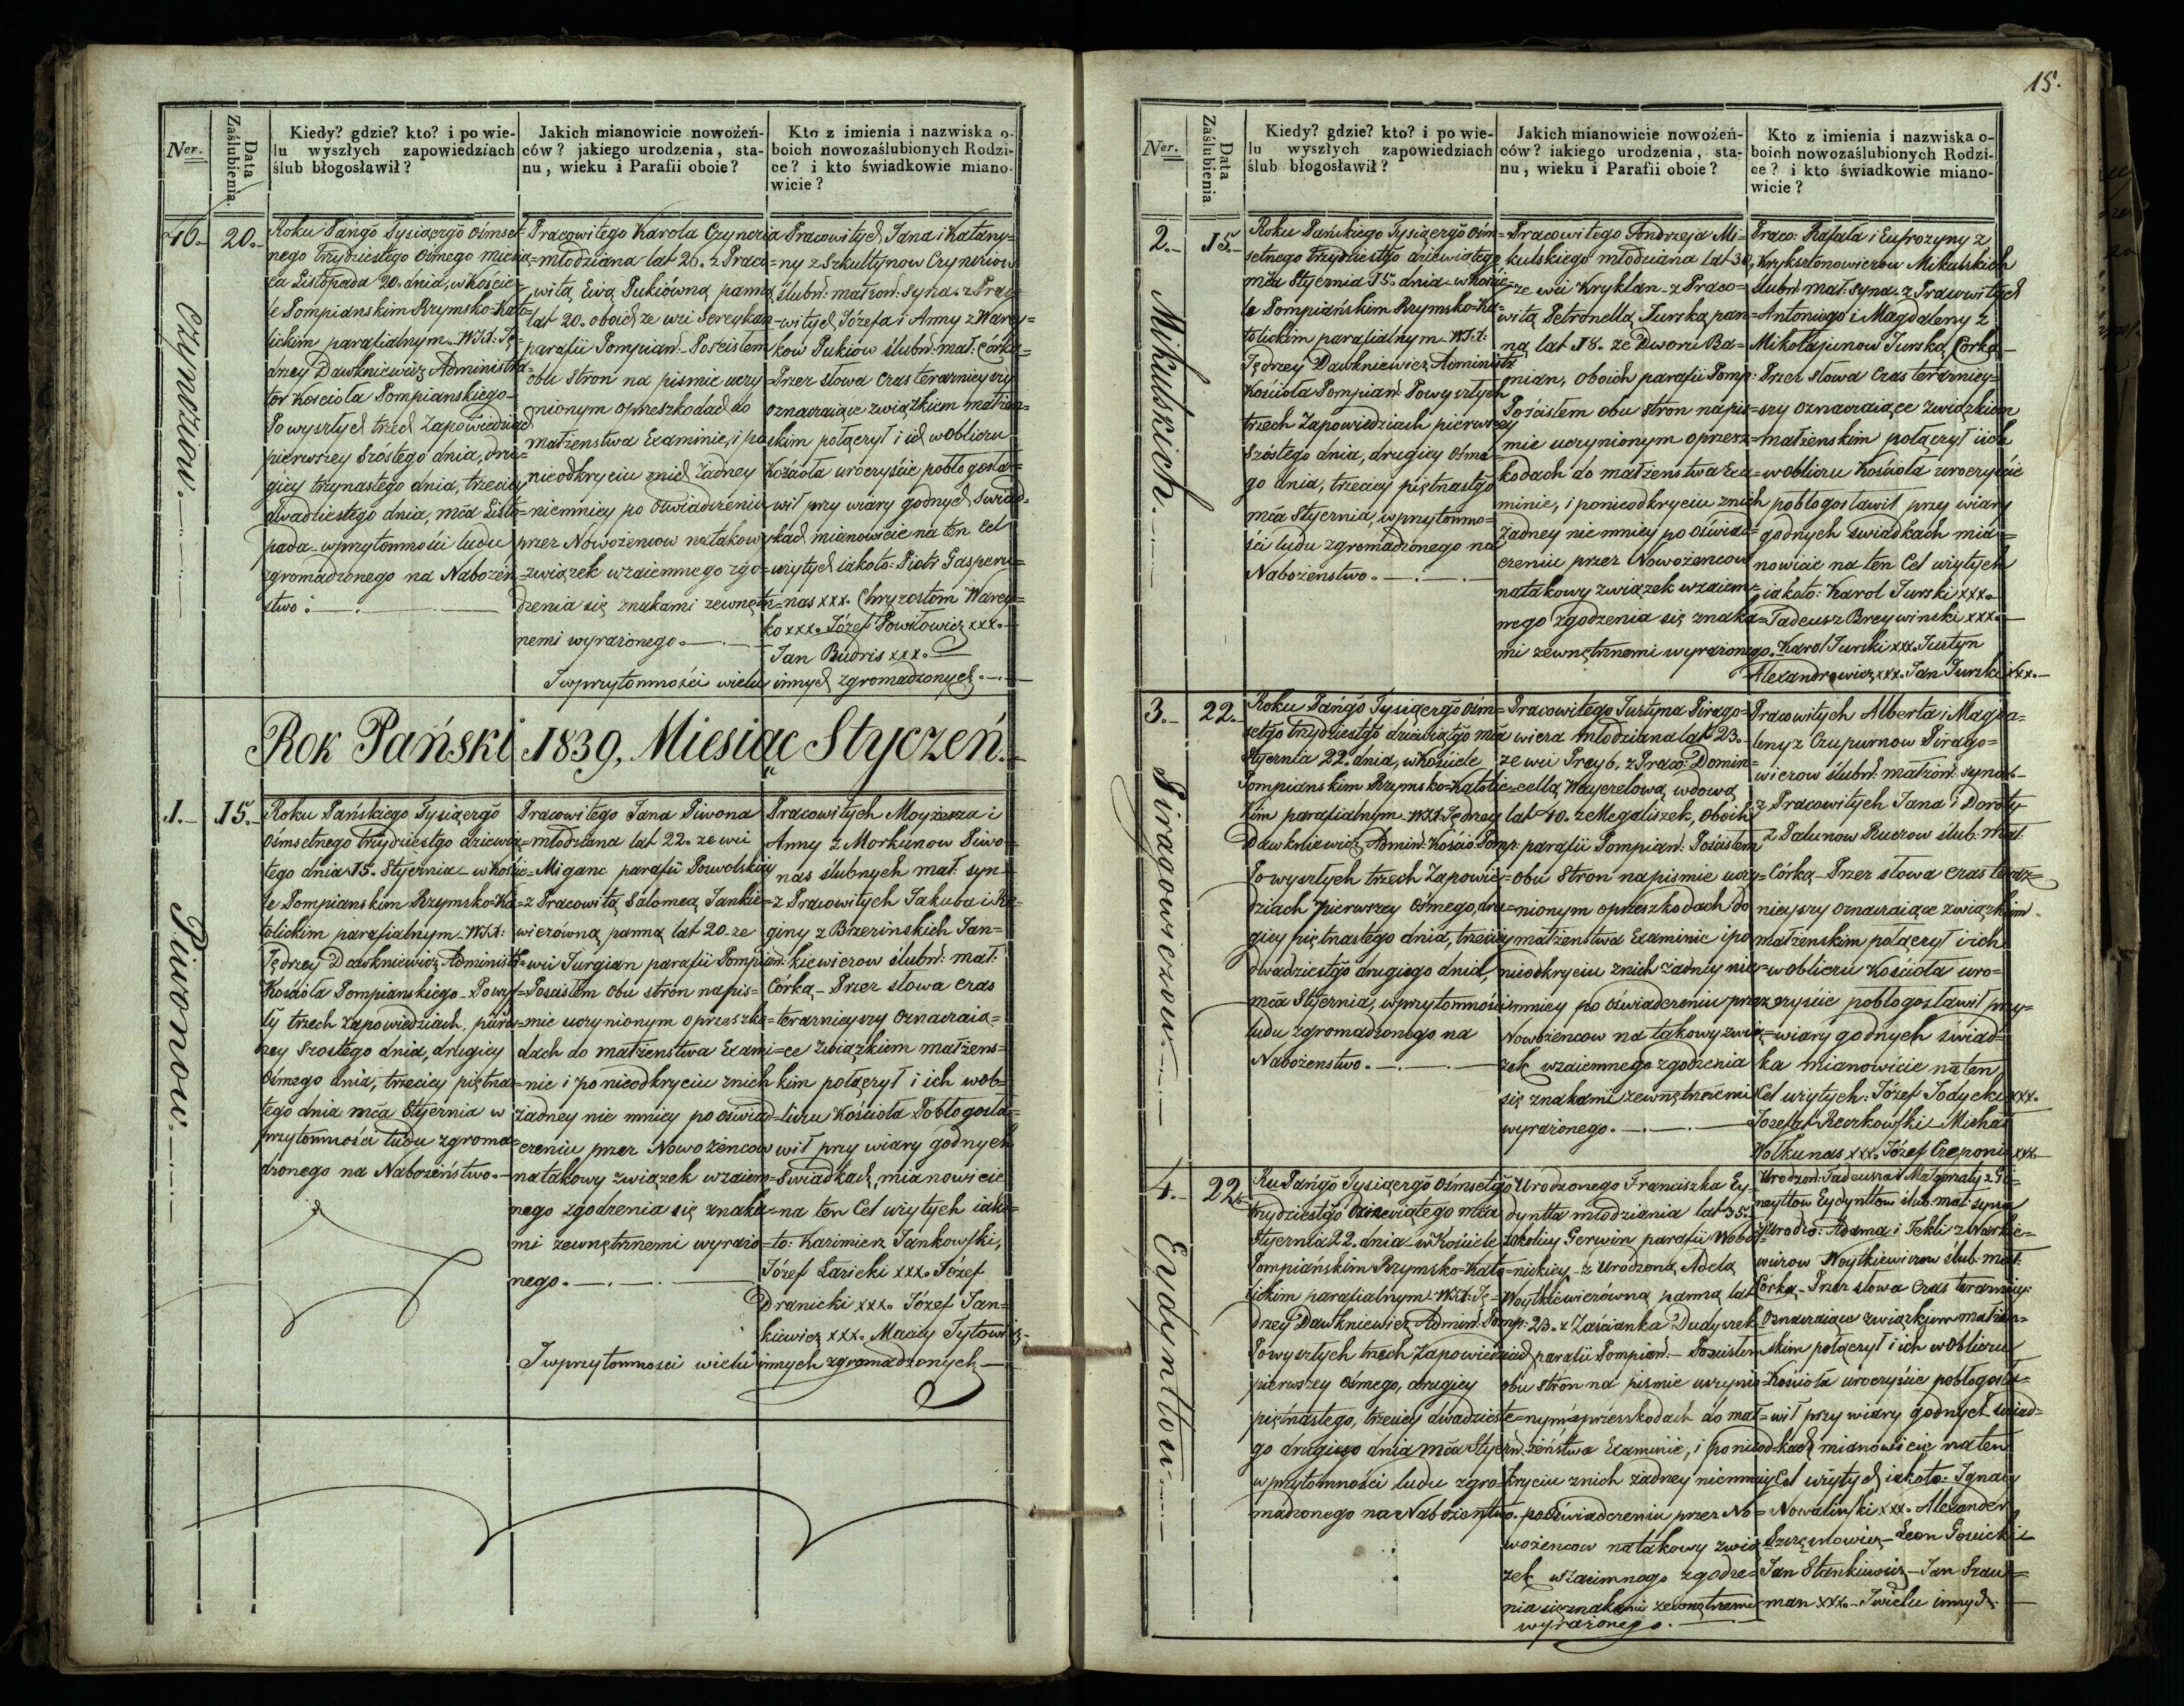 Ner.
Data Zaślubienia.
Kiedy? gdzie? kto? i po wie-
lu wyszłych zapowiedziach
ślub błogosławił?
Jakich mianowicie nowożeń-
ców? jakiego urodzenia, sta-
nu, wieku i Parafii oboie?
Kto z imienia i nazwiska o-
boich nowozaślubionych Rodzi-
ce? i kto świadkowie miano-
wicie?
46.
20.
Czynczow.
Roku Pańgo Tysiącrgō Ośmset=
nego Trzydziestego Osmego miesią=
ca Listopada 20. dnia, w Koście=
le Pompianskim Rzymsko-Kato=
lickim parafialnym. WJX: Ję=
drzey Dawkniewicz Administra=
tor Kościoła Pompianskiego
Po wyszłych trzech Zapowiedziach
pierwszey Szóstego dnia, dru=
giey trzynastego dnia, trzeciey
dwadziestego dnia, mca Listo=
pada w przytomności ludu
zgromadzonego na Nabożeń=
stwo.
Pracowitego Karola Czynczia
młodziana lat 26. z Praco=
witą Ewą Pukiówną panną
lat 20. oboich ze wsi Jereykan
parafii Pompian. Pościsłem
obu Stron na pismie uczy=
nionym o przeszkodach do
małżenstwa Examinie, i po
nieodkryciu z nich Żadney
niemniey po Oświadczeniu
przez Nowożencow na takowy
związek wzaiemnego zgo=
dzenia się znakami zewnętrz=
nemi wyrażonego.
Pracowitych Jana i Katarzy=
ny z Szkultynow Czynziow
ślubn: małżon: Syna z Prac=
witych Józefa i Anny z Warey=
kow Pukiow ślubn: mał: Córką
Przez słowa czas teraznieyszy
oznaczaiące związkiem małżen=
skim połączył i ich w obliczu
Kościoła uroczyście pobłogosła=
wił przy wiary godnych Świad=
kach mianowicie na ten Cel
użytych iakoto: Piotr Gasperu=
nas xxx. Chryzostom Warey=
ko xxx. Józef Powiłowicz xxx.
Jan Budris xxx.
I w przytomności wielu innych zgromadzonych.
Rok Pański 1839, Miesiąc Styczeń.
1.
15.
Piwonow.
Roku Pańskiego Tysiącrgō
Ośmsetnego Trzydziestgo dziewią=
tego dnia 15. Stycznia w Koście=
le Pompianskim Rzymsko-Ka=
tolickim parafialnym. WJX:
Jędrzey Dawkniewicz Administr:
Kościoła Pompianskiego Po wysz=
ły trzech Zapowiedziach, pierw=
szey Szostego dnia, drugiey
Osmego dnia, trzeciey piętnas=
tego dnia mca Stycznia w
przytomności ludu zgroma=
dzonego na Nabożeństwo.
Pracowitego Jana Piwona
młodziana lat 22. ze wsi
Miganc parafii Pozwolskiey
z Pracowitą Salomeą Jankie=
wiczówną panną lat 20. ze
wsi Jurgian parafii Pompian:
Pościsłem obu stron na pis=
mie uczynionym o przeszko=
dach do małżenstwa Exami=
nie i po nieodkryciu z nich
żadney nie mniey po oświad=
czeniu przez Nowożencow
na takowy związek wzaiem=
nego zgodzenia się znaka=
mi zewnętrznemi wyrażo=
nego.
Pracowitych Moyżesza i
Anny z Morkunow Piwo=
nas ślubnych mał: syn
z Pracowitych Jakuba i Re=
giny z Brzezinskich Jan=
kiewiczow ślubn: mał:
Córką Przez słowa czas
teraznieyszy Oznaczaią=
ce Związkiem małżens=
kim połączył i ich w ob=
liczu Kościoła Pobłogosła=
wił przy wiary godnych
Świadkach mianowicie
na ten Cel użytych iako=
to: Kazimierz Jankowski,
Józef Łasicki xxx. Józef
Dranicki xxx. Józef Jan=
kiewicz xxx. Maciey Tytowicz
I w przytomnosci wielu innych zgromadzonych
15.
Ner.
Data Zaślubienia
Kiedy? gdzie? kto? i po wie-
lu wyszłych zapowiedziach
ślub błogosławił?
Jakich mianowicie nowożeń-
ców? iakiego urodzenia, sta-
nu, wieku i Parafii oboie?
Kto z imienia i nazwiska o-
boich nowozaślubionych Rodzi-
ce? i kto świadkowie miano-
wicie?
2.
15.
Mikulskich.
Roku Pańskiego Tysiącrgō Ośm=
setnego Trzydziestgo dziewiątego
mca Stycznia 15. dnia w Koście=
le Pompiańskim Rzymsko-Ka=
tolickim parafialnym. WJX:
Jędrzey Dawkniewicz Administr
Kościoła Pompian: Po wyszłych
trzech Zapowiedziach pierwszey
Szóstego dnia, drugiey Osme=
go dnia, trzeciey piętnastgo
mca Stycznia, w przytomno=
ści ludu zgromadzonego na
Nabożenstwo.
Pracowitego Andrzeja Mi=
kulskiego młodziana lat 30,
ze wsi Kryklan z Praco=
witą Petronellą Jurską pan=
ną lat 18. ze Dworu Ba=
mian, Oboich parafii Pomp:
Pościsłem obu stron na pis=
mie uczynionym o przesz=
kodach do małżenstwa Exa=
minie, i po nieodkryciu z nich
Żadney nie mniey po oświad=
czeniu przez Nowożencow
na takowy związek wzaiem=
nego zgodzenia się znaka=
mi zewnętrznemi wyrażonego.
Praco: Rafała i Eufrozyny z
Krykształowiczow Mikulskich
ślubn: mał: syna z Pracowitych
Antoniego i Magdaleny z
Mikołajunow Jurską Córką
Przez słowa Czas terazniey=
szy oznaczaiące związkiem
małżenskim połączył i ich
w obliczu Kościoła uroczyście
pobłogosławił przy wiary
godnych świadkach mia=
nowicie na ten Cel użytych
iakoto: Karol Jurski xxx.
Tadeusz Breywinski xxx.
Karol Jurski xx. Justyn
Alexandrowicz xxx. Jan Jurski xxx.
3.
22.
Piragowiczow.
Roku Pańgō Tysiącrgō Ośm=
setgo Trzydziestgo dziewiątgo mca
Stycznia 22. dnia, w Kościele
Pompianskim Rzymsko-Katolic=
kim parafialnym. WJX. Jędrzey
Dawkniewicz Admin: Kościo: Pomp:
Po wyszłych trzech Zapowie=
dziach pierwszey Osmego, dru=
giey piętnastego dnia, trzeciey
dwadziestgo drugiego dnia,
mca Stycznia, w przytomności
ludu zgromadzonego na
Nabożenstwo.
Pracowitego Justyna Pirago=
wicza młodziana lat 23.
ze wsi Treyb. z Praco: Domin=
cellą Wayczelową wdową
lat 40. ze Megaliszek, Oboich
parafii Pompian: Pościsłem
obu Stron na pismie uczy=
nionym o przeszkodach do
małżenstwa Examinie i po
nieodkryciu z nich żadney nie=
mniey po oświadczeniu przez
Nowożencow na takowy zwią=
zek wzaiemnego zgodzenia
się znakami zewnętrznemi
wyrażonego.
Pracowitych Alberta i Magda=
leny z Czupurnow Pirago=
wiczow ślubn: małżon: syna
z Pracowitych Jana i Doroty
z Palunow Ruczow ślub: mał:
Córką Przez słowa czas teraz=
nieyszy oznaczaiące związkiem
małżenskim połączył i ich
w obliczu Kościoła uro=
czyście pobłogosławił przy
wiary godnych świad=
ka mianowicie na ten
Cel użytych: Józef Jodycki xxx.
Jozefat Reczkowski Michał
Wołkunas xxx. Józef Czeponis xxx.
4.
22.
Eydyntow.
Ru Pańgō Tysiącrgō Ośmsetgō
Trzydziestgo Dziewiątego mca
Stycznia 22. dnia w Kościele
Pompiańskim Rzymsko-Kato=
lickim parafialnym. WJX: Ję=
drzey Dawkniewicz Admin: Pomp:
Po wyszłych trzech Zapowiedziach
pierwszey Osmego, drugiey
piętnastego, trzeciey dwadzieste=
go drugiego dnia mca Stycz:
w przytomności ludu zgro=
madzonego na Nabożenstwo.
Urodzonego Franciszka Ey=
dyntta młodziana lat 35.
z okolicy Gerwin parafii Wobol=
nickiey z Urodzoną Adelą
Woytkiewiczówną panną lat
23. z Zaścianka Dudyszek
parafii Pompian: Pościsłem
obu stron na pismie uczynio=
nym o przeszkodach do mał=
żeństwa Examinie, i po nieod=
kryciu z nich żadney niemniey
po Oświadczeniu przez No=
wożencow na takowy zwią=
zek wzaiemnego zgodze=
nia się znakami zewnętrznemi
wyrażonego.
Urodzon: Tadeusza i Małgorzaty z Gi=
neytow Eydynttow ślub: mał: syna
z Urodzo: Adama i Tekli z Narkie=
wiczow Woytkiewiczow ślub: mał:
Córką Przez słowa Czas teraznieyszy
Oznaczaiące związkiem małżen=
skim połączył i ich w obliczu
Kościoła uroczyście pobłogosła=
wił przy wiary godnych świad=
kach mianowicie na ten
Cel użytych iakoto: Ignacy
Nowaliński xxx. Alexander
Szczęsnowicz Leon Gosicki
Jan Stankiewicz Jan Szau=
man xxx. I wielu innych